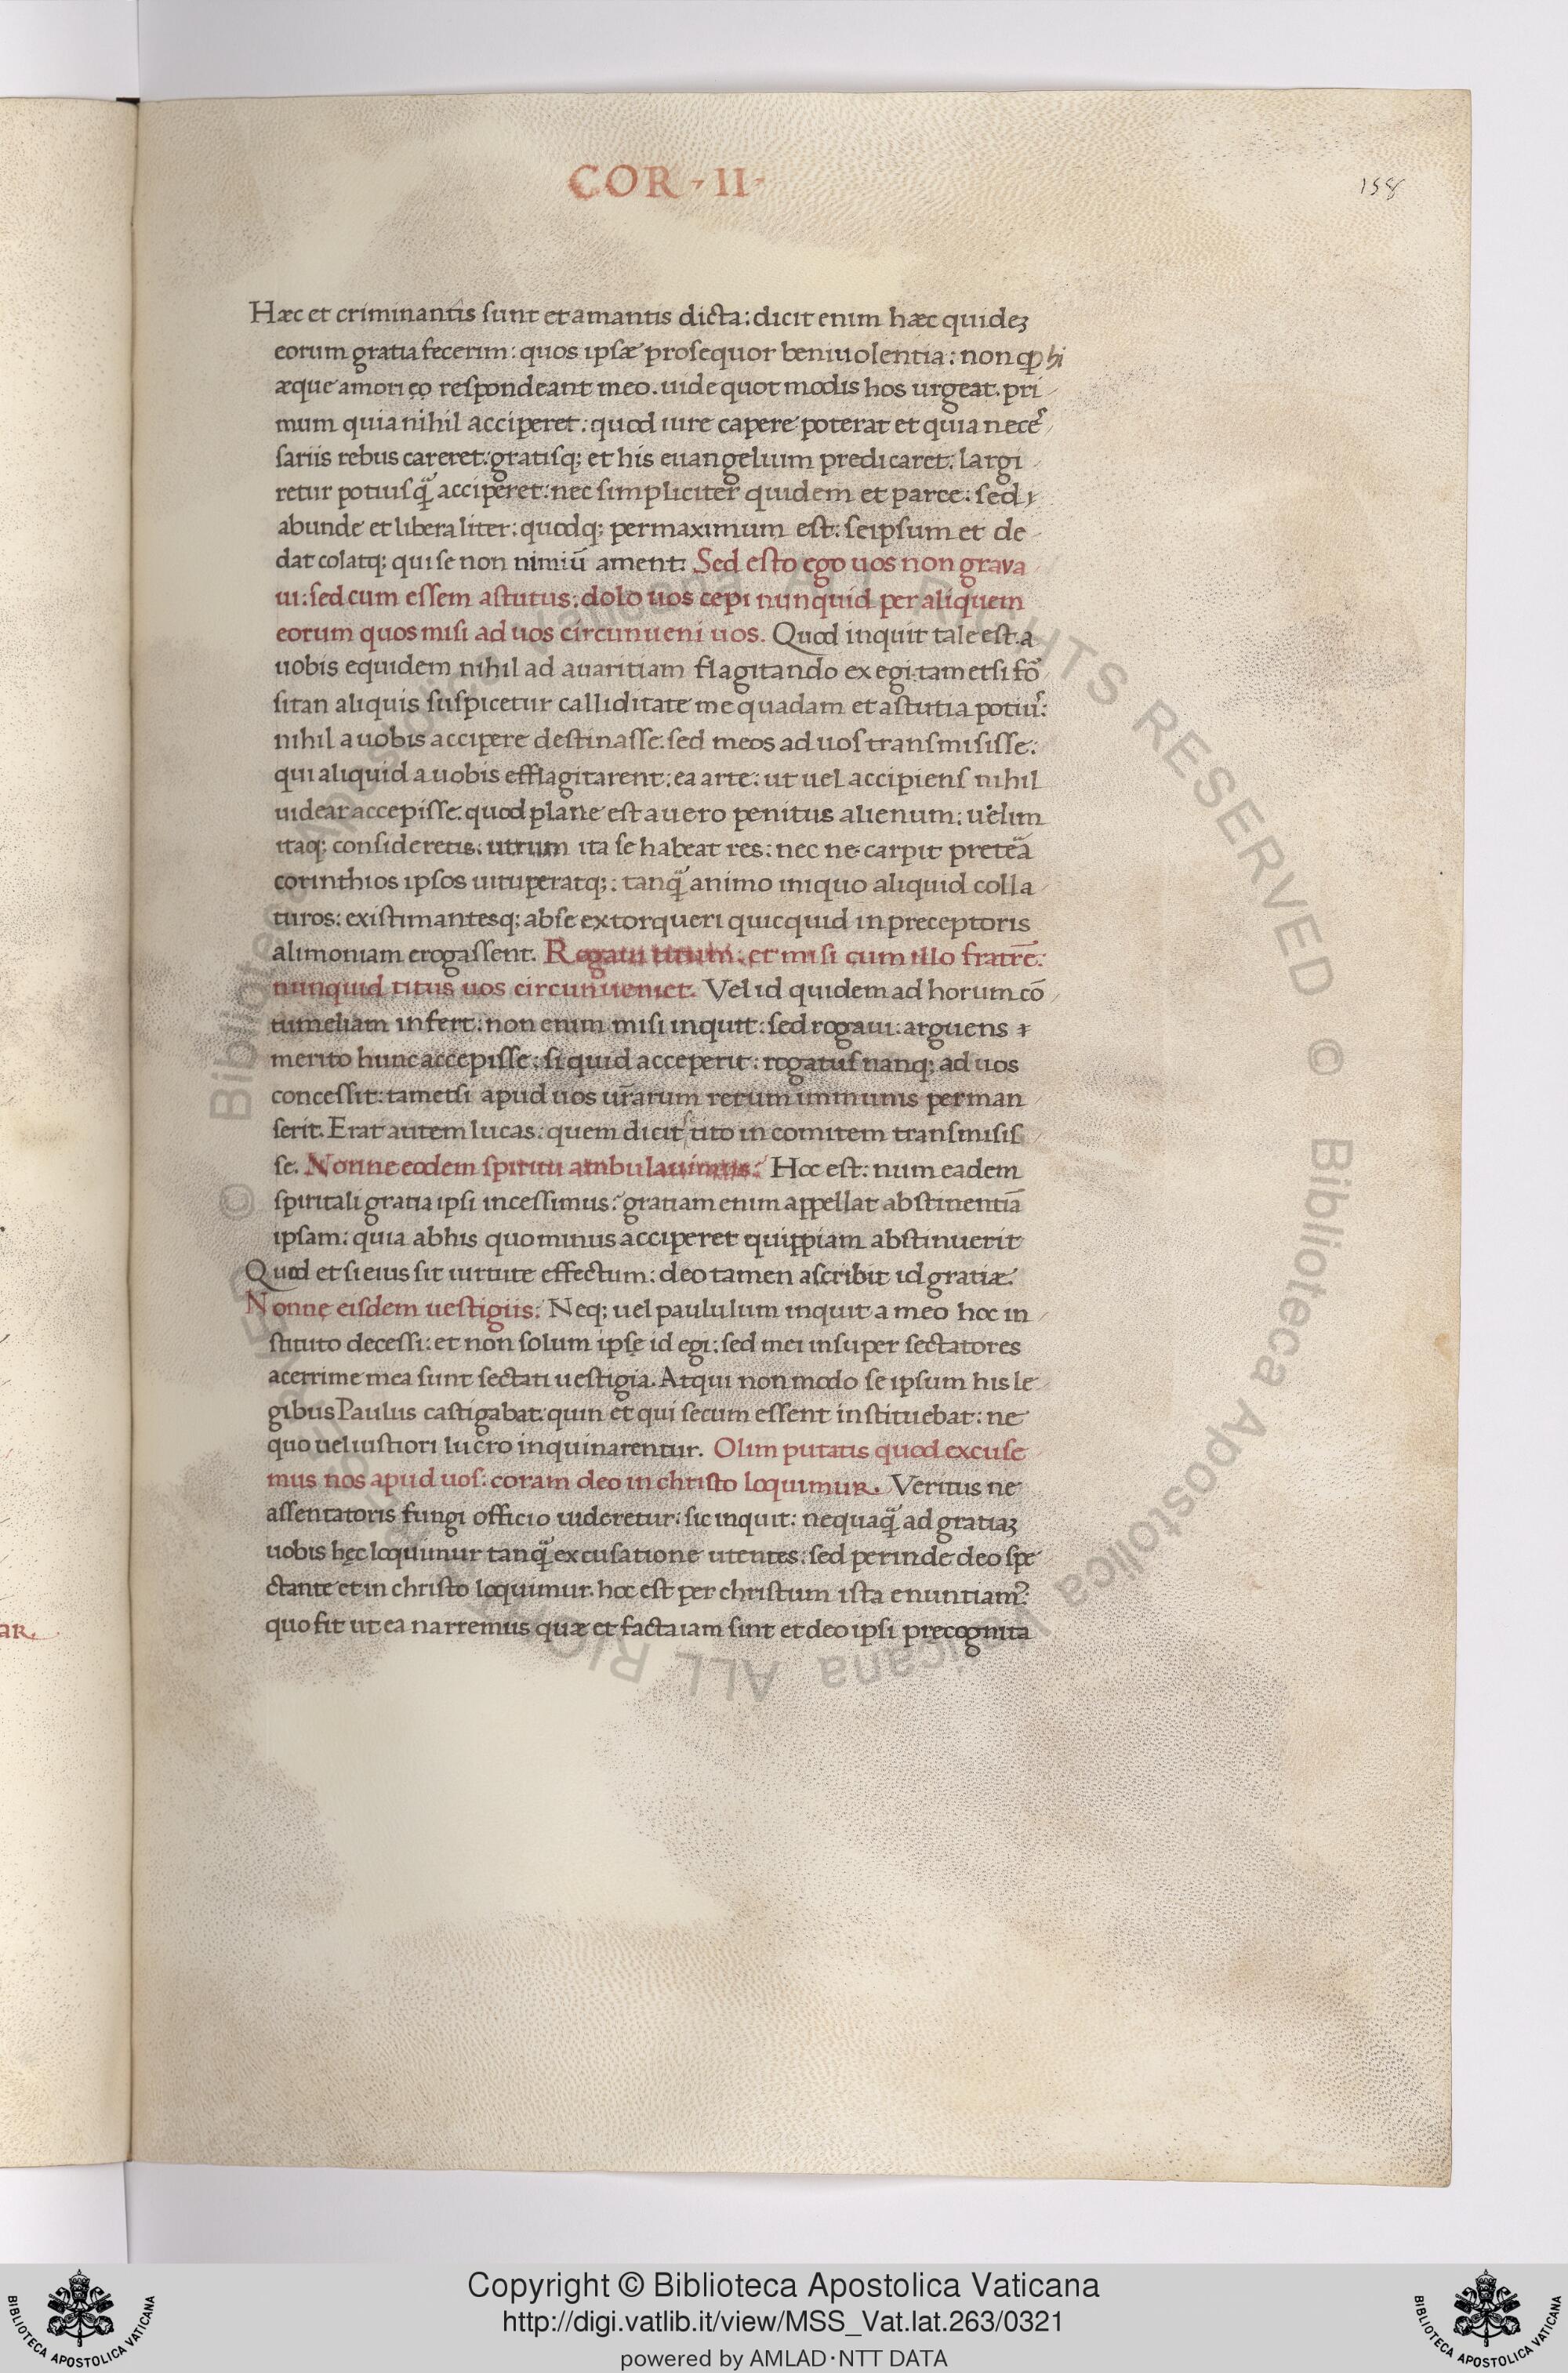 COR · II ·
158
Hæc et criminantis sunt et amantis dicta: dicit enim hæc quideʒ
eorum gratia fecerim: quos ipsæ prosequor beniuolentia: non ꝙ hi
æque amori eo respondeant meo. uide quot modis hos urgeat. pri
mum quia nihil acciperet: quod iure capere poterat et quia necẽ
sariis rebus careret: gratisq; et his euangelium predicaret. largi
retur potius q̃ acciperet: nec simpliciter quidem et parce: sed
abunde et liberaliter: quodq; permaximum est: seipsum et de
dat colatq; qui se non nimiū ament: Sed esto ego uos non grava
ui: sed cum essem astutus: dolo uos cepi nunquid per aliquem
eorum quos misi ad uos circunueni uos. Quod inquit tale est. a
uobis equidem nihil ad avaritiam flagitando exegi. tametsi fõ
sitan aliquis suspicetur calliditate me quadam et astutia potiuˢ:
nihil a uobis accipere destinasse. sed meos ad uos transmisisse:
qui aliquid a uobis efflagitarent: ea arte: ut uel accipiens nihil
uidear accepisse. quod plane est a uero penitus alienum: uelim
itaq; consideretis: utrum ita se habeat res: nec ne. carpit pretẽa
corinthios ipsos uituperatq;: tanq̃ animo iniquo aliquid colla
turos: existimantesq; abse extorqueri quicquid in preceptoris
alimoniam erogassent. Rogaui titum: et misi cum illo fratrē:
nunquid titus uos circunueniet. Vel id quidem ad horum cō
tumeliam infert: non enim misi inquit: sed rogaui: arguens
merito hunc accepisse: si quid acceperit: rogatus nanq; ad uos
concessit: tametsi apud uos ur̄arum rerum immunis perman
serit. Erat autem lucas: quem dicit tito in comitem transmisis
se. Nonne eodem spiritu ambulauimus: Hoc est: num eadem
spiritali gratia ipsi incessimus: gratiam enim appellat abstinentiā
ipsam: quia abhis quominus acciperet quippiam abstinuerit
Quod et si eius sit uirtute effectum: deo tamen ascribit id gratiæ.
Nonne eisdem uestigiis: Neq; uel paululum inquit a meo hoc in
stituto decessi: et non solum ipse id egi: sed mei insuper sectatores
acerrime mea sunt sectati uestigia. Atqui non modo se ipsum his le
gibus Paulus castigabat: quin et qui secum essent instituebat: ne
quo uel iustiori lucro inquinarentur. Olim putatis quod excuse
mus nos apud uos: coram deo in christo loquimur. Veritus ne
assentatoris fungi officio uideretur: sic inquit: nequaq̃ ad gratiaʒ
uobis hęc loquimur tanq̃ excusatione utentes: sed perinde deo spe
ctante et in christo loquimur. hoc est per christum ista enuntiamꝰ:
quo fit ut ea narremus quæ et facta iam sint et deo ipsi precognita
aR.
© Biblioteca Apostolica Vaticana ALL RIGHTS RESERVED © Biblioteca Apostolica Vaticana ALL RIGHTS RESERVED
Copyright © Biblioteca Apostolica Vaticana
http://digi.vatlib.it/view/MSS_Vat.lat.263/0321
powered by AMLAD·NTT DATA
BIBLIOTECA APOSTOLICA VATICANA
BIBLIOTECA APOSTOLICA VATICANA